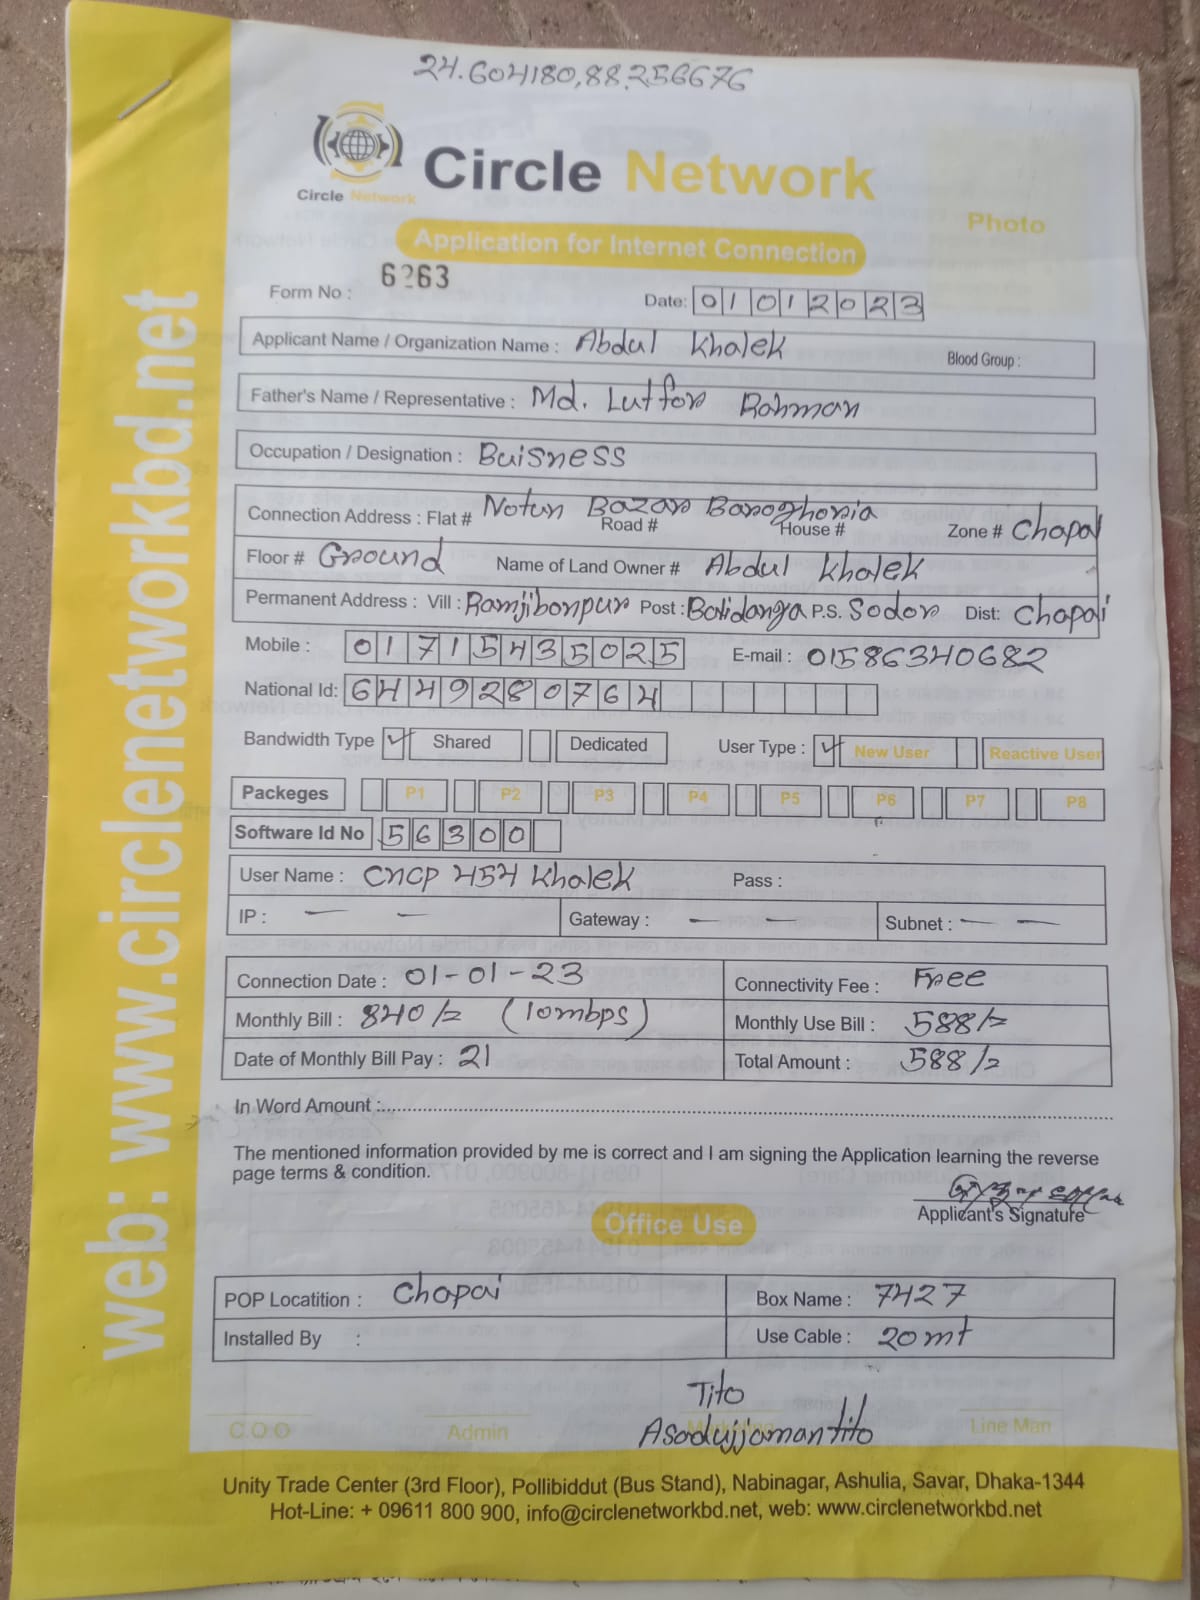 24.604180,88.256676
Circle Network
Circle Network
Photo
Application for Internet Connection
Form No : 6263 Date: 01012023
Applicant Name / Organization Name : Abdul Khalek Blood Group :
Father's Name / Representative : Md. Lutfor Rahman
Occupation / Designation : Buisness
Connection Address : Flat # Notun Bazar Baroghoria Road # House # Zone # Chapai
Floor # Ground Name of Land Owner # Abdul Khalek
Permanent Address : Vill : Ramjibonpur Post : Balidanga P.S. Sodor Dist: Chapai
Mobile : 01715435025 E-mail : 01586340682
National Id: 6449280764
Bandwidth Type ✓ Shared Dedicated User Type : ✓ New User Reactive User
Packeges P1 P2 P3 P4 P5 P6 P7 P8
Software Id No 56300
User Name : CNCP 454 Khalek Pass :
IP : — — Gateway : — — Subnet : — —
Connection Date : 01-01-23 Connectivity Fee : Free
Monthly Bill : 840/= (10mbps) Monthly Use Bill : 588/=
Date of Monthly Bill Pay : 21 Total Amount : 588/=
In Word Amount :
The mentioned information provided by me is correct and I am signing the Application learning the reverse
page terms & condition.
Applicant's Signature
Office Use
POP Locatition : Chapai Box Name : 7427
Installed By : Use Cable : 20mt
Tito
Asadujjaman tito
C.O.O Admin Marketing Line Man
Unity Trade Center (3rd Floor), Pollibiddut (Bus Stand), Nabinagar, Ashulia, Savar, Dhaka-1344
Hot-Line: + 09611 800 900, info@circlenetworkbd.net, web: www.circlenetworkbd.net
web: www.circlenetworkbd.net